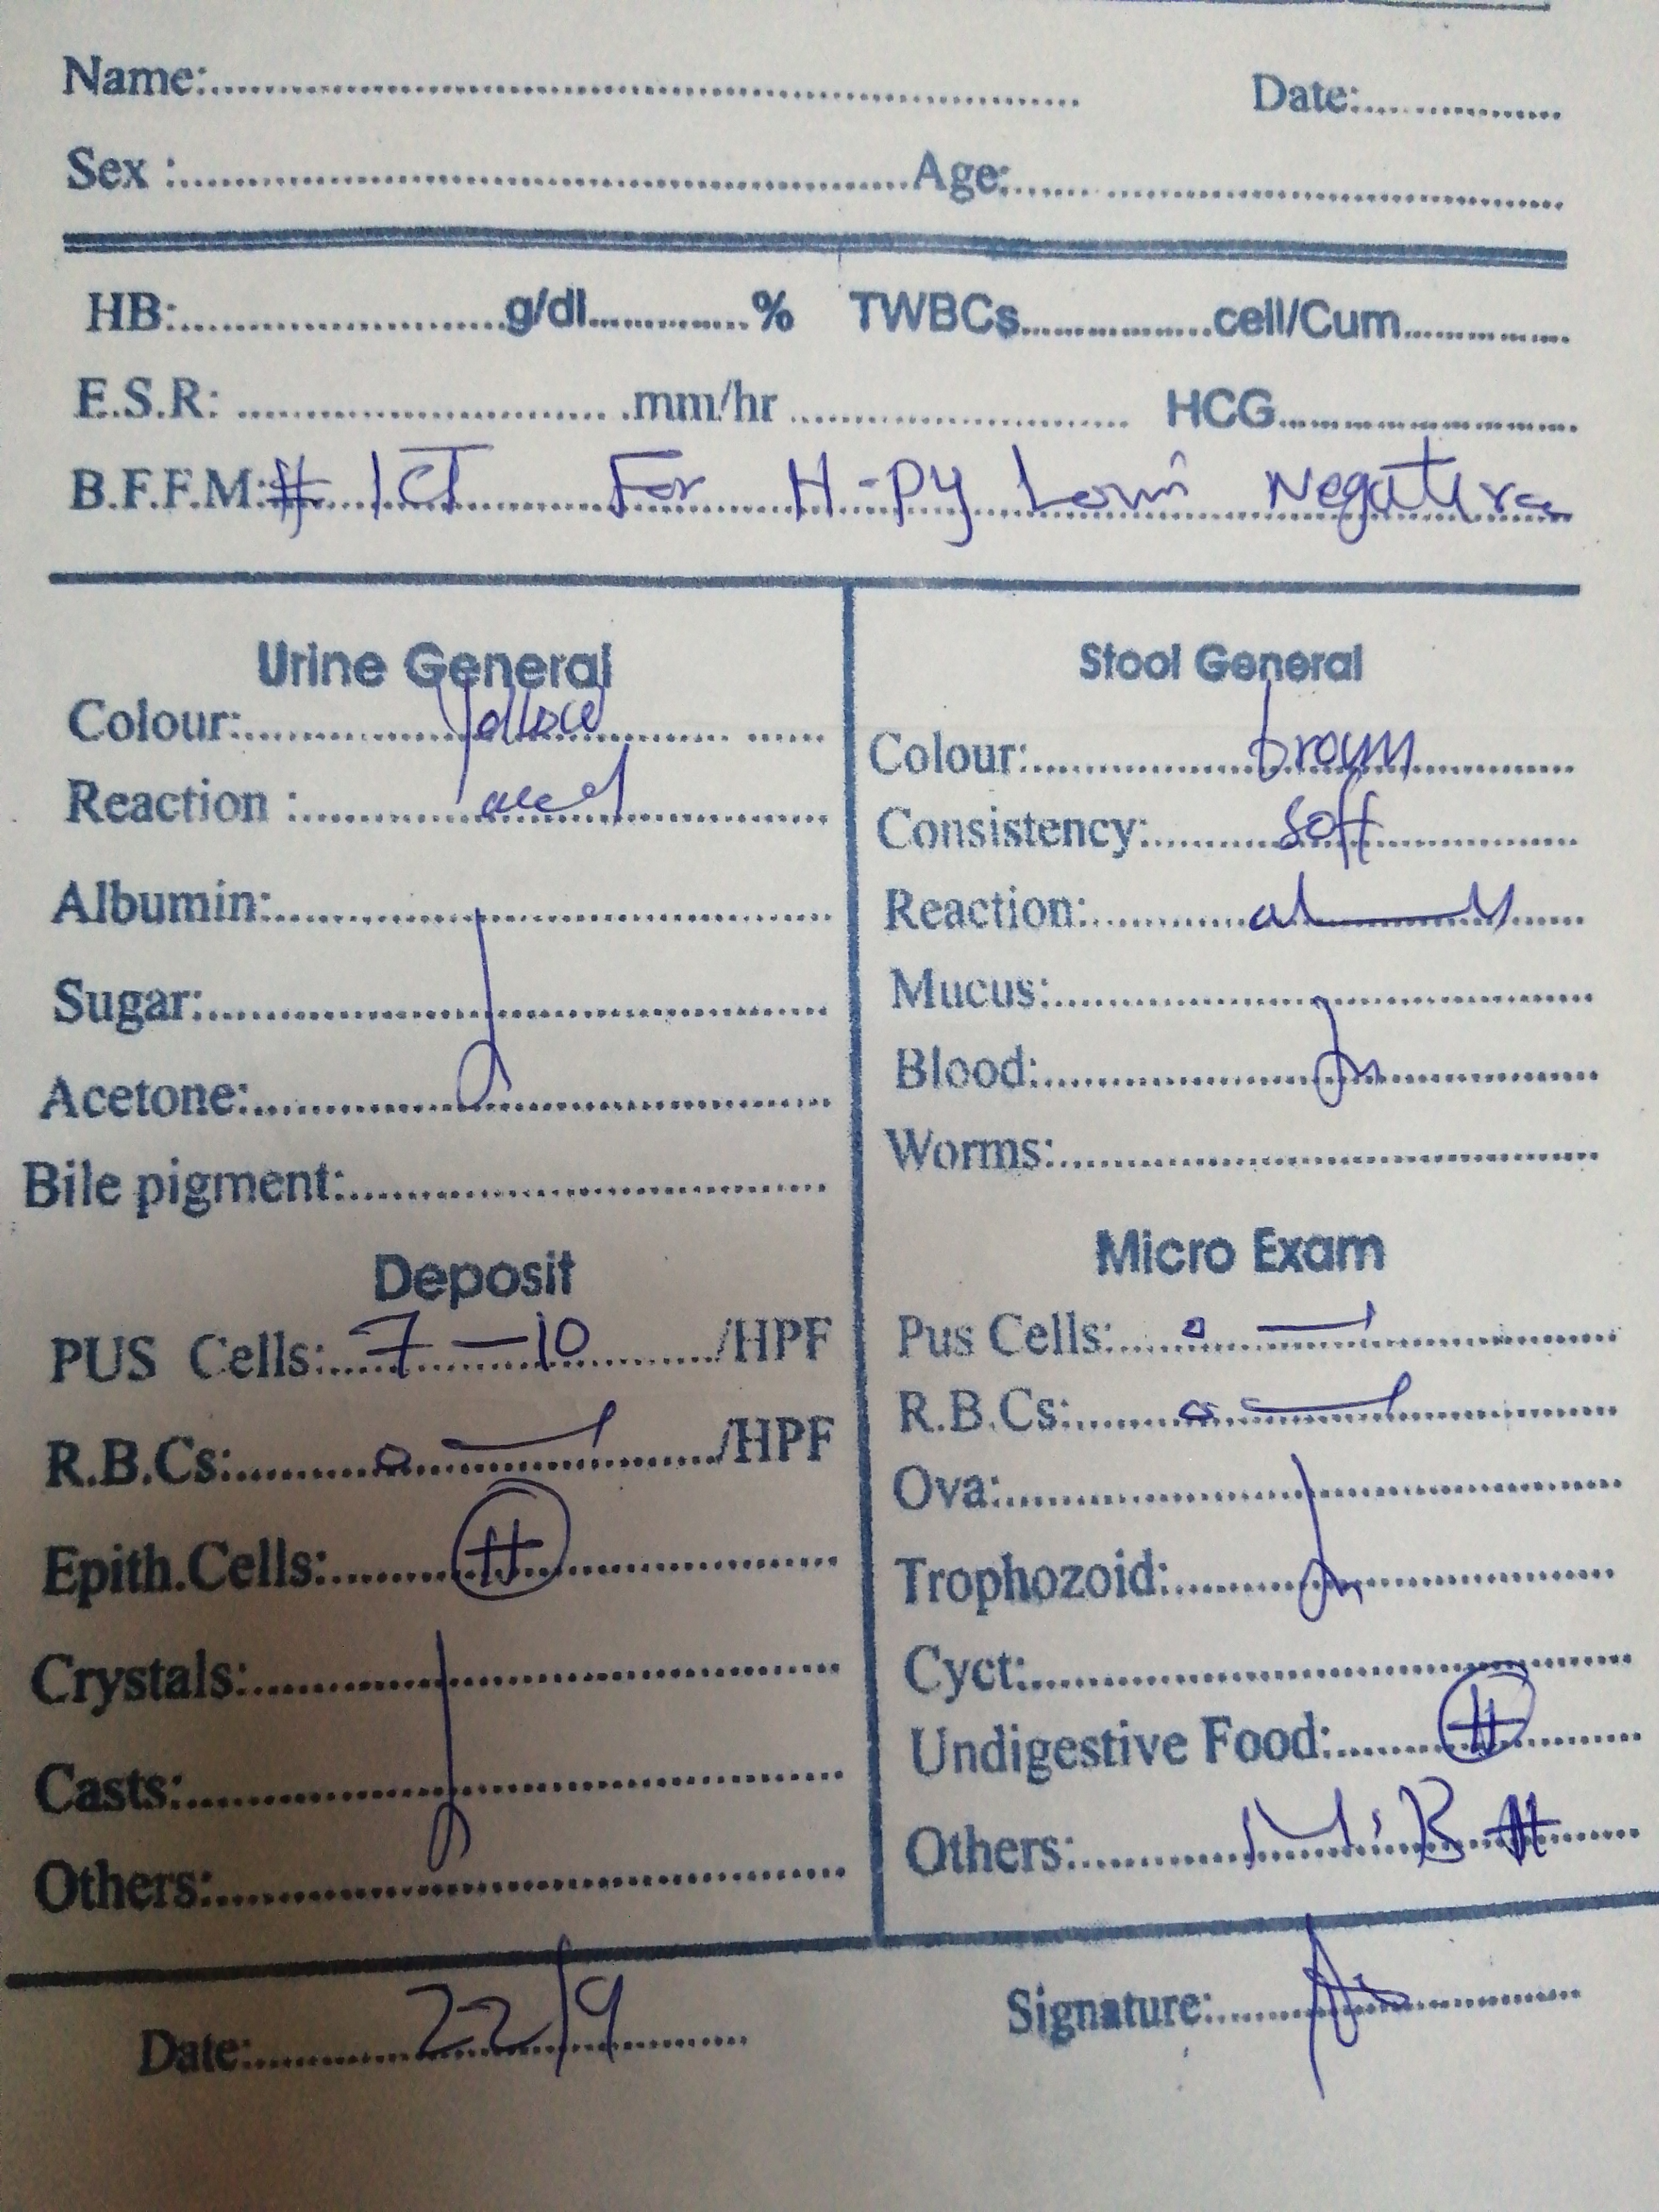 Name: Date:
Sex : Age:
HB: g/dl % TWBCs cell/Cum
E.S.R: mm/hr HCG
B.F.F.M: # ICT For H-Py Lori Negative
Urine General
Colour: yellow
Reaction :
Albumin:
Sugar:
Acetone:
Bile pigment:
Deposit
PUS Cells: 7 - 10 /HPF
R.B.Cs: 0 - 1 /HPF
Epith.Cells: ++
Crystals:
Casts:
Others:
Stool General
Colour: brown
Consistency: soft
Reaction:
Mucus:
Blood:
Worms:
Micro Exam
Pus Cells: 0 - 1
R.B.Cs: 0 - 1
Ova:
Trophozoid:
Cyct:
Undigestive Food: ++
Others:
Date: 22/9
Signature: